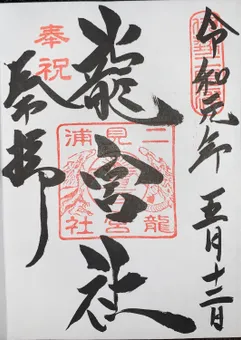 令和元年 五月十二日
龍宮社
二見浦
龍宮社
奉祝
奉拝